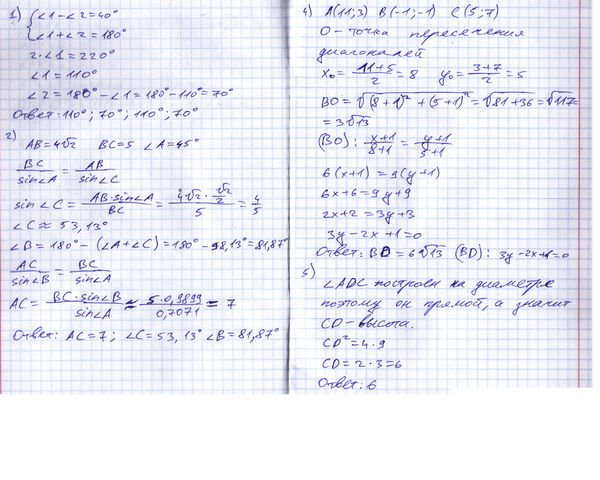 1) {∠1-∠2=40°
∠1+∠2=180°
2·∠1=220°
∠1=110°
∠2=180°-∠1=180°-110°=70°
Ответ: 110°; 70°; 110°; 70°
2)
AB=4√2 BC=5 ∠A=45°
BC/sin∠A = AB/sin∠C
sin∠C = AB·sin∠A/BC = 4√2·√2/2/5 = 4/5
∠C≈53,13°
∠B=180°-(∠A+∠C)=180°-98,13°=81,87°
AC/sin∠B = BC/sin∠A
AC = BC·sin∠B/sin∠A ≈ 5·0,9899/0,7071 = 7
Ответ: AC=7; ∠C=53,13° ∠B=81,87°
4) A(11;3) B(-1;-1) C(5;7)
O-точка пересечения
диагоналей
x₀=11+5/2=8 y₀=3+7/2=5
BO=√(8+1)²+(5+1)²=√81+36=√117=
=3√13
(BO): x+1/8+1=y+1/5+1
6(x+1)=9(y+1)
6x+6=9y+9
2x+2=3y+3
3y-2x+1=0
Ответ: BD=6√13 (BD): 3y-2x+1=0
5)
∠ADC построен на диаметре
поэтому он прямой, а значит
CD-высота.
CD²=4·9
CD=2·3=6
Ответ: 6